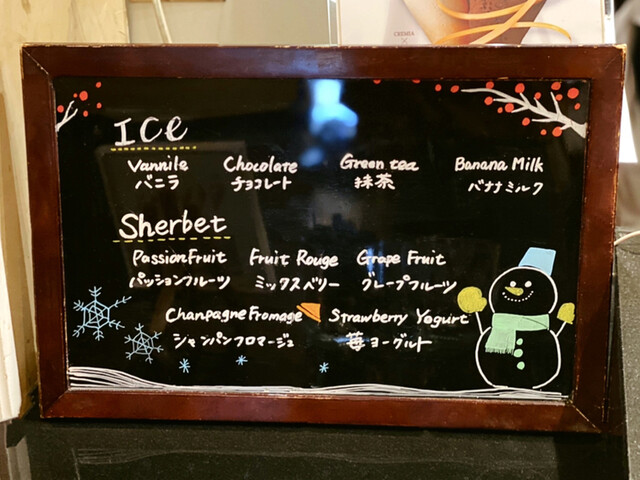 CREMIA
ICe
Vannile Chocolate Green tea Banana Milk
バニラ チョコレート 抹茶 バナナミルク
Sherbet
Passion Fruit Fruit Rouge Grape Fruit
パッションフルーツ ミックスベリー グレープフルーツ
Chanpagne Fromage Strawberry Yogurt
シャンパンフロマージュ 苺ヨーグルト